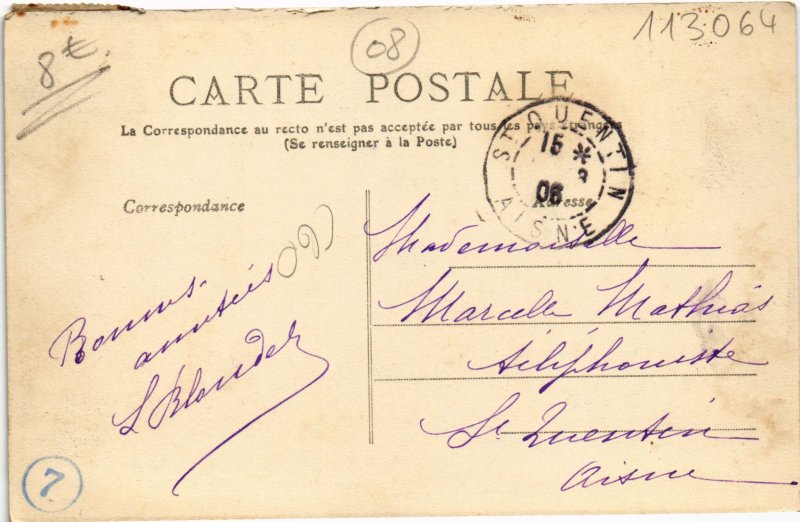 8€
08
113064
CARTE POSTALE
La Correspondance au recto n'est pas acceptée par tous les pays étrangers
(Se renseigner à la Poste)
ST QUENTIN
15 *
8
06
AISNE
Correspondance
Adresse
Bonnes
amitiés
Mademoiselle
Marcelle Mathias
téléphoniste
St Quentin
Aisne
7